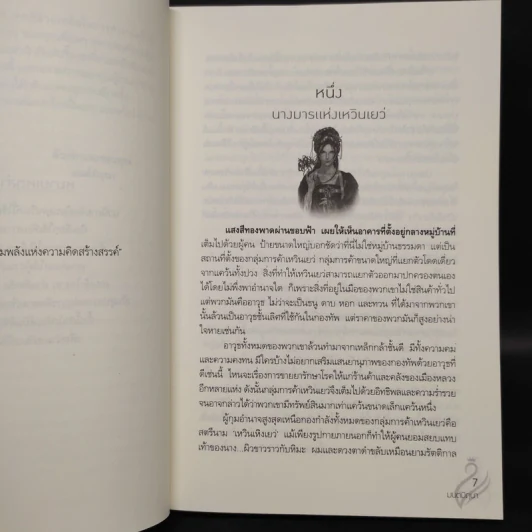 มพลังแห่งความคิดสร้างสรรค์"
หนึ่ง
นางมารแห่งเหวินเยว่
แสงสีทองพาดผ่านขอบฟ้า เผยให้เห็นอาคารที่ตั้งอยู่กลางหมู่บ้านที่
เต็มไปด้วยผู้คน ป้ายขนาดใหญ่บอกชัดว่าที่นี่ไม่ใช่หมู่บ้านธรรมดา แต่เป็น
สถานที่ตั้งของกลุ่มการค้าเหวินเยว่ กลุ่มการค้าขนาดใหญ่ที่แยกตัวโดดเดี่ยว
จากแคว้นทั้งปวง สิ่งที่ทำให้เหวินเยว่สามารถแยกตัวออกมาปกครองตนเอง
ได้โดยไม่พึ่งพาอำนาจใด ก็เพราะสิ่งที่อยู่ในมือของพวกเขาไม่ใช่สินค้าทั่วไป
แต่พวกมันคืออาวุธ ไม่ว่าจะเป็นธนู ดาบ หอก และทวน ที่ได้มาจากพวกเขา
นั้นล้วนเป็นอาวุธชั้นเลิศที่ใช้กันในกองทัพ แต่ราคาของพวกมันก็สูงอย่างน่า
ใจหายเช่นกัน
อาวุธทั้งหมดของพวกเขาล้วนทำมาจากเหล็กกล้าชั้นดี มีทั้งความคม
และความคงทน มีใครบ้างไม่อยากเสริมแสนยานุภาพของกองทัพด้วยอาวุธที่
ดีเช่นนี้ ไหนจะเรื่องการขายยารักษาโรคให้แก่ร้านค้าและคลังของเมืองหลวง
อีกหลายแห่ง ดังนั้นกลุ่มการค้าเหวินเยว่จึงเต็มไปด้วยอิทธิพลและความร่ำรวย
จนอาจกล่าวได้ว่าพวกเขามีทรัพย์สินมากเท่าแคว้นขนาดเล็กแคว้นหนึ่ง
ผู้กุมอำนาจสูงสุดเหนือกองกำลังทั้งหมดของกลุ่มการค้าเหวินเยว่คือ
สตรีนาม 'เหวินเหิงเยว่' แม้เพียงรูปกายภายนอกก็ทำให้ผู้คนยอมสยบแทบ
เท้าของนาง... ผิวขาวราวกับหิมะ ผมและดวงตาดำขลับเหมือนยามรัตติกาล
7